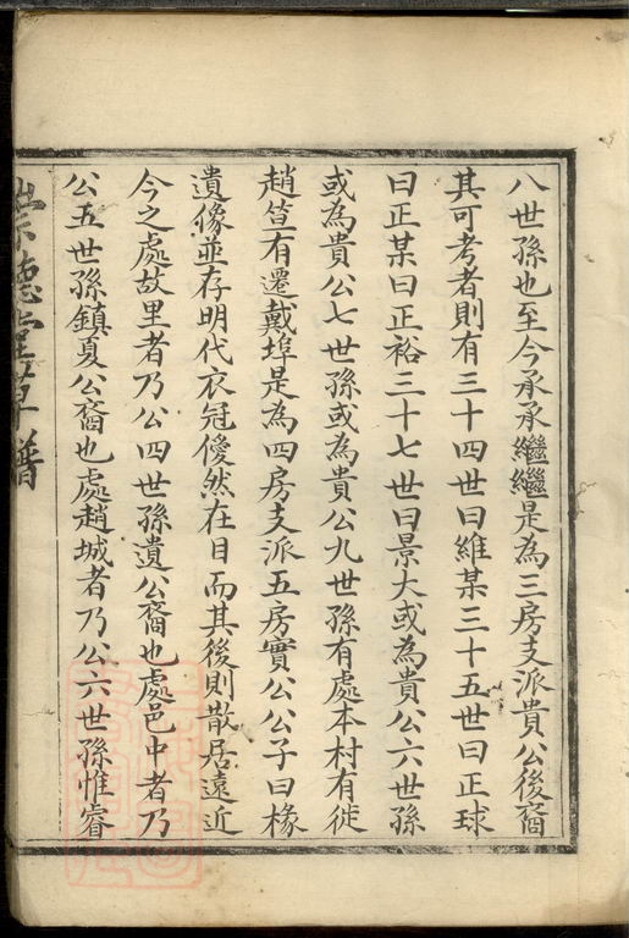 八世孫也至今承承繼繼是為三房支派貴公後裔
其可考者則有三十四世曰維某三十五世曰正球
曰正某曰正裕三十七世曰景大或為貴公六世孫
或為貴公七世孫或為貴公九世孫有處本村有徙
趙笪有遷戴埠是為四房支派五房實公公子曰椽
遺像並存明代衣冠儍然在目而其後則散居遠近
今之處故里者乃公四世孫遺公裔也處邑中者乃
公五世孫鎮夏公裔也處趙城者乃公六世孫惟睿
崇德堂草譜